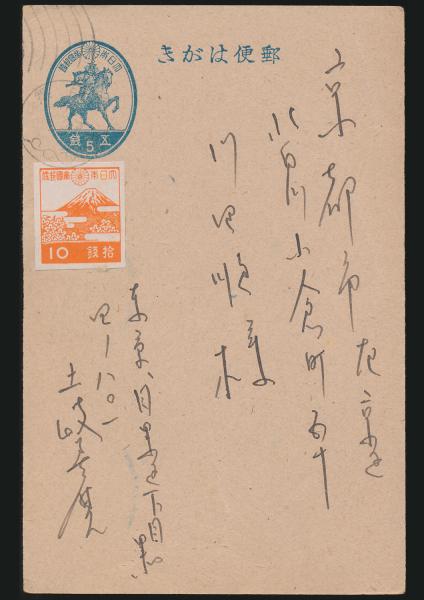 郵便はがき
大日本帝國郵便
五5銭
大日本帝國郵便
10拾銭
京都市左京区
北白川小倉町五十
川田順様
東京目黒区下目黒
四ノ八〇一
土岐善麿